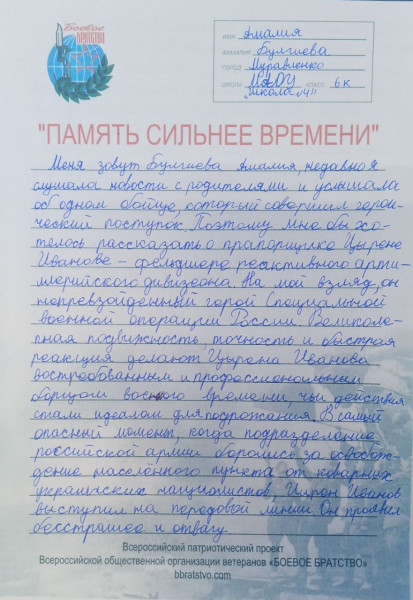 Боевое
БРАТСТВО
ИМЯ Амалия
ФАМИЛИЯ Булгиева
ГОРОД Муравленко
ШКОЛА МАОУ КЛАСС 6к
"Школа №4"
"ПАМЯТЬ СИЛЬНЕЕ ВРЕМЕНИ"
Меня зовут Булгиева Амалия, недавно я
слушала новости с родителями и услышала
об одном бойце, который совершил герои-
ческий поступок. Поэтому мне бы хо-
телось рассказать о прапорщике Цырене
Иванове - фельдшере реактивного арти-
ллерийского дивизиона. На мой взгляд, он
непревзойденный герой Специальной
военной операции России. Великоле-
пная подвижность, точность и быстрая
реакция делают Цырена Иванова
востребованным и профессиональным
борцом военного времени, чьи действия
стали идеалом для подрожания. В самый
опасный момент, когда подразделение
российской армии боролись за освобож-
дение населённого пункта от коварных
украинских националистов, Цырен Иванов
выступил на передовой линии. Он проявил
бесстрашее и отвагу.
Всероссийский патриотический проект
Всероссийской общественной организации ветеранов «БОЕВОЕ БРАТСТВО»
bbratstvo.com